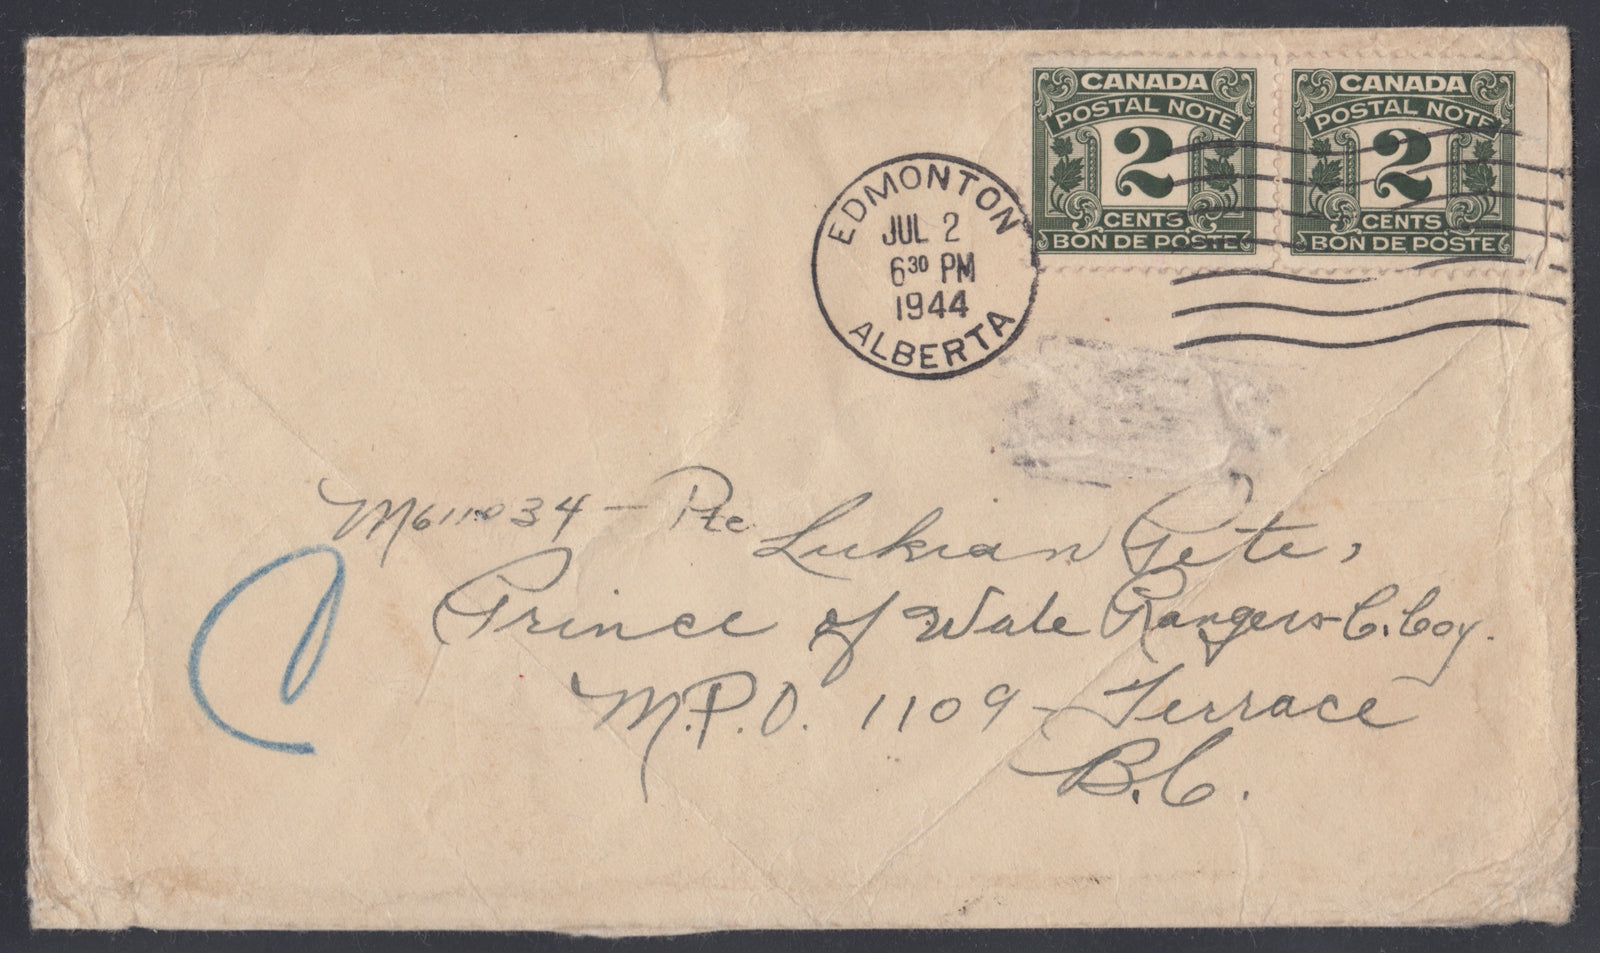 CANADA
POSTAL NOTE
2
CENTS
BON DE POSTE
CANADA
POSTAL NOTE
2
CENTS
BON DE POSTE
EDMONTON
JUL 2
6 30 PM
1944
ALBERTA
M611034 - Pte Lukian Pete,
Prince of Wale Rangers - C. Coy.
M.P.O. 1109 - Terrace
B.C.
C